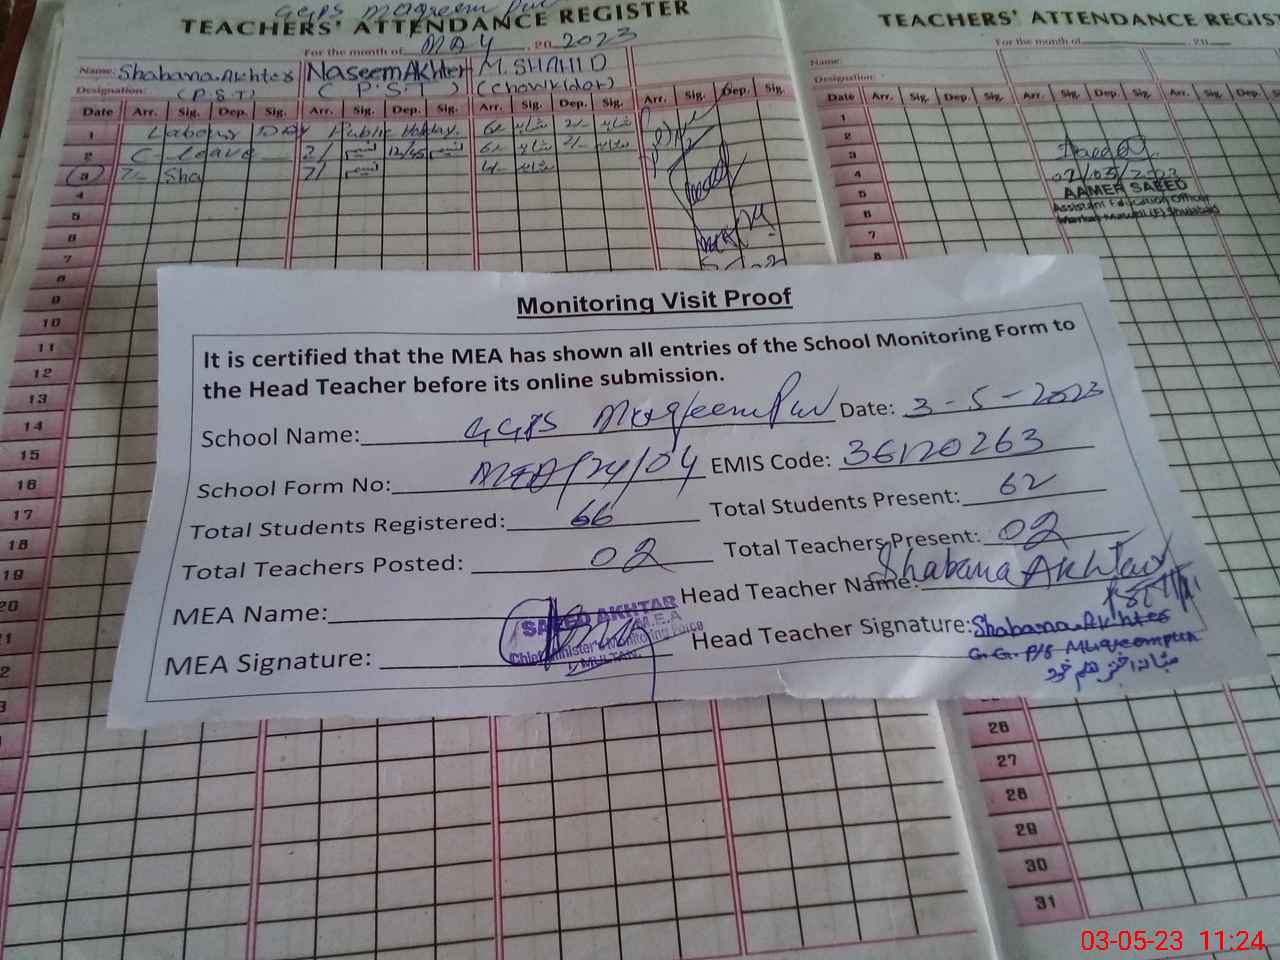 GGPS Maqreem Pur
TEACHERS' ATTENDANCE REGISTER
For the month of MAY, 20 2023
Name: Shabana Akhter Naseem Akhter M. SHAHID
Designation: (P.S.T) (P.S.T) (Chowkidar)
Date Arr. Sig. Dep. Sig. Arr. Sig. Dep. Sig. Arr. Sig. Dep. Sig. Arr. Sig. Dep. Sig.
1 Labour Day Public Holiday
2 C-leave 12/45
3 Sha
4
5
6
7
8
9
10
11
12
13
14
15
16
17
18
19
20
TEACHERS' ATTENDANCE REGIST
For the month of 20
Name:
Designation:
Date Arr. Sig. Dep. Sig. Arr. Sig. Dep. Sig. Arr. Sig.
1
2
3
4
5
6
7
8
02/05/2023
AAMER SAEED
Assistant Education Officer
Monitoring Visit Proof
It is certified that the MEA has shown all entries of the School Monitoring Form to
the Head Teacher before its online submission.
School Name: GGPS Muqeem Pur Date: 3-5-2023
School Form No: MEA/24/04 EMIS Code: 36120263
Total Students Registered: 66 Total Students Present: 62
Total Teachers Posted: 02 Total Teachers Present: 02
MEA Name: Head Teacher Name: Shabana Akhtar
SAEED AKHTAR
M.E.A
Chief Minister's Monitoring Force
MULTAN.
MEA Signature: Head Teacher Signature: Shabana Akhter
G.G.P/S Muqeempur
26
27
28
29
30
31
03-05-23 11:24